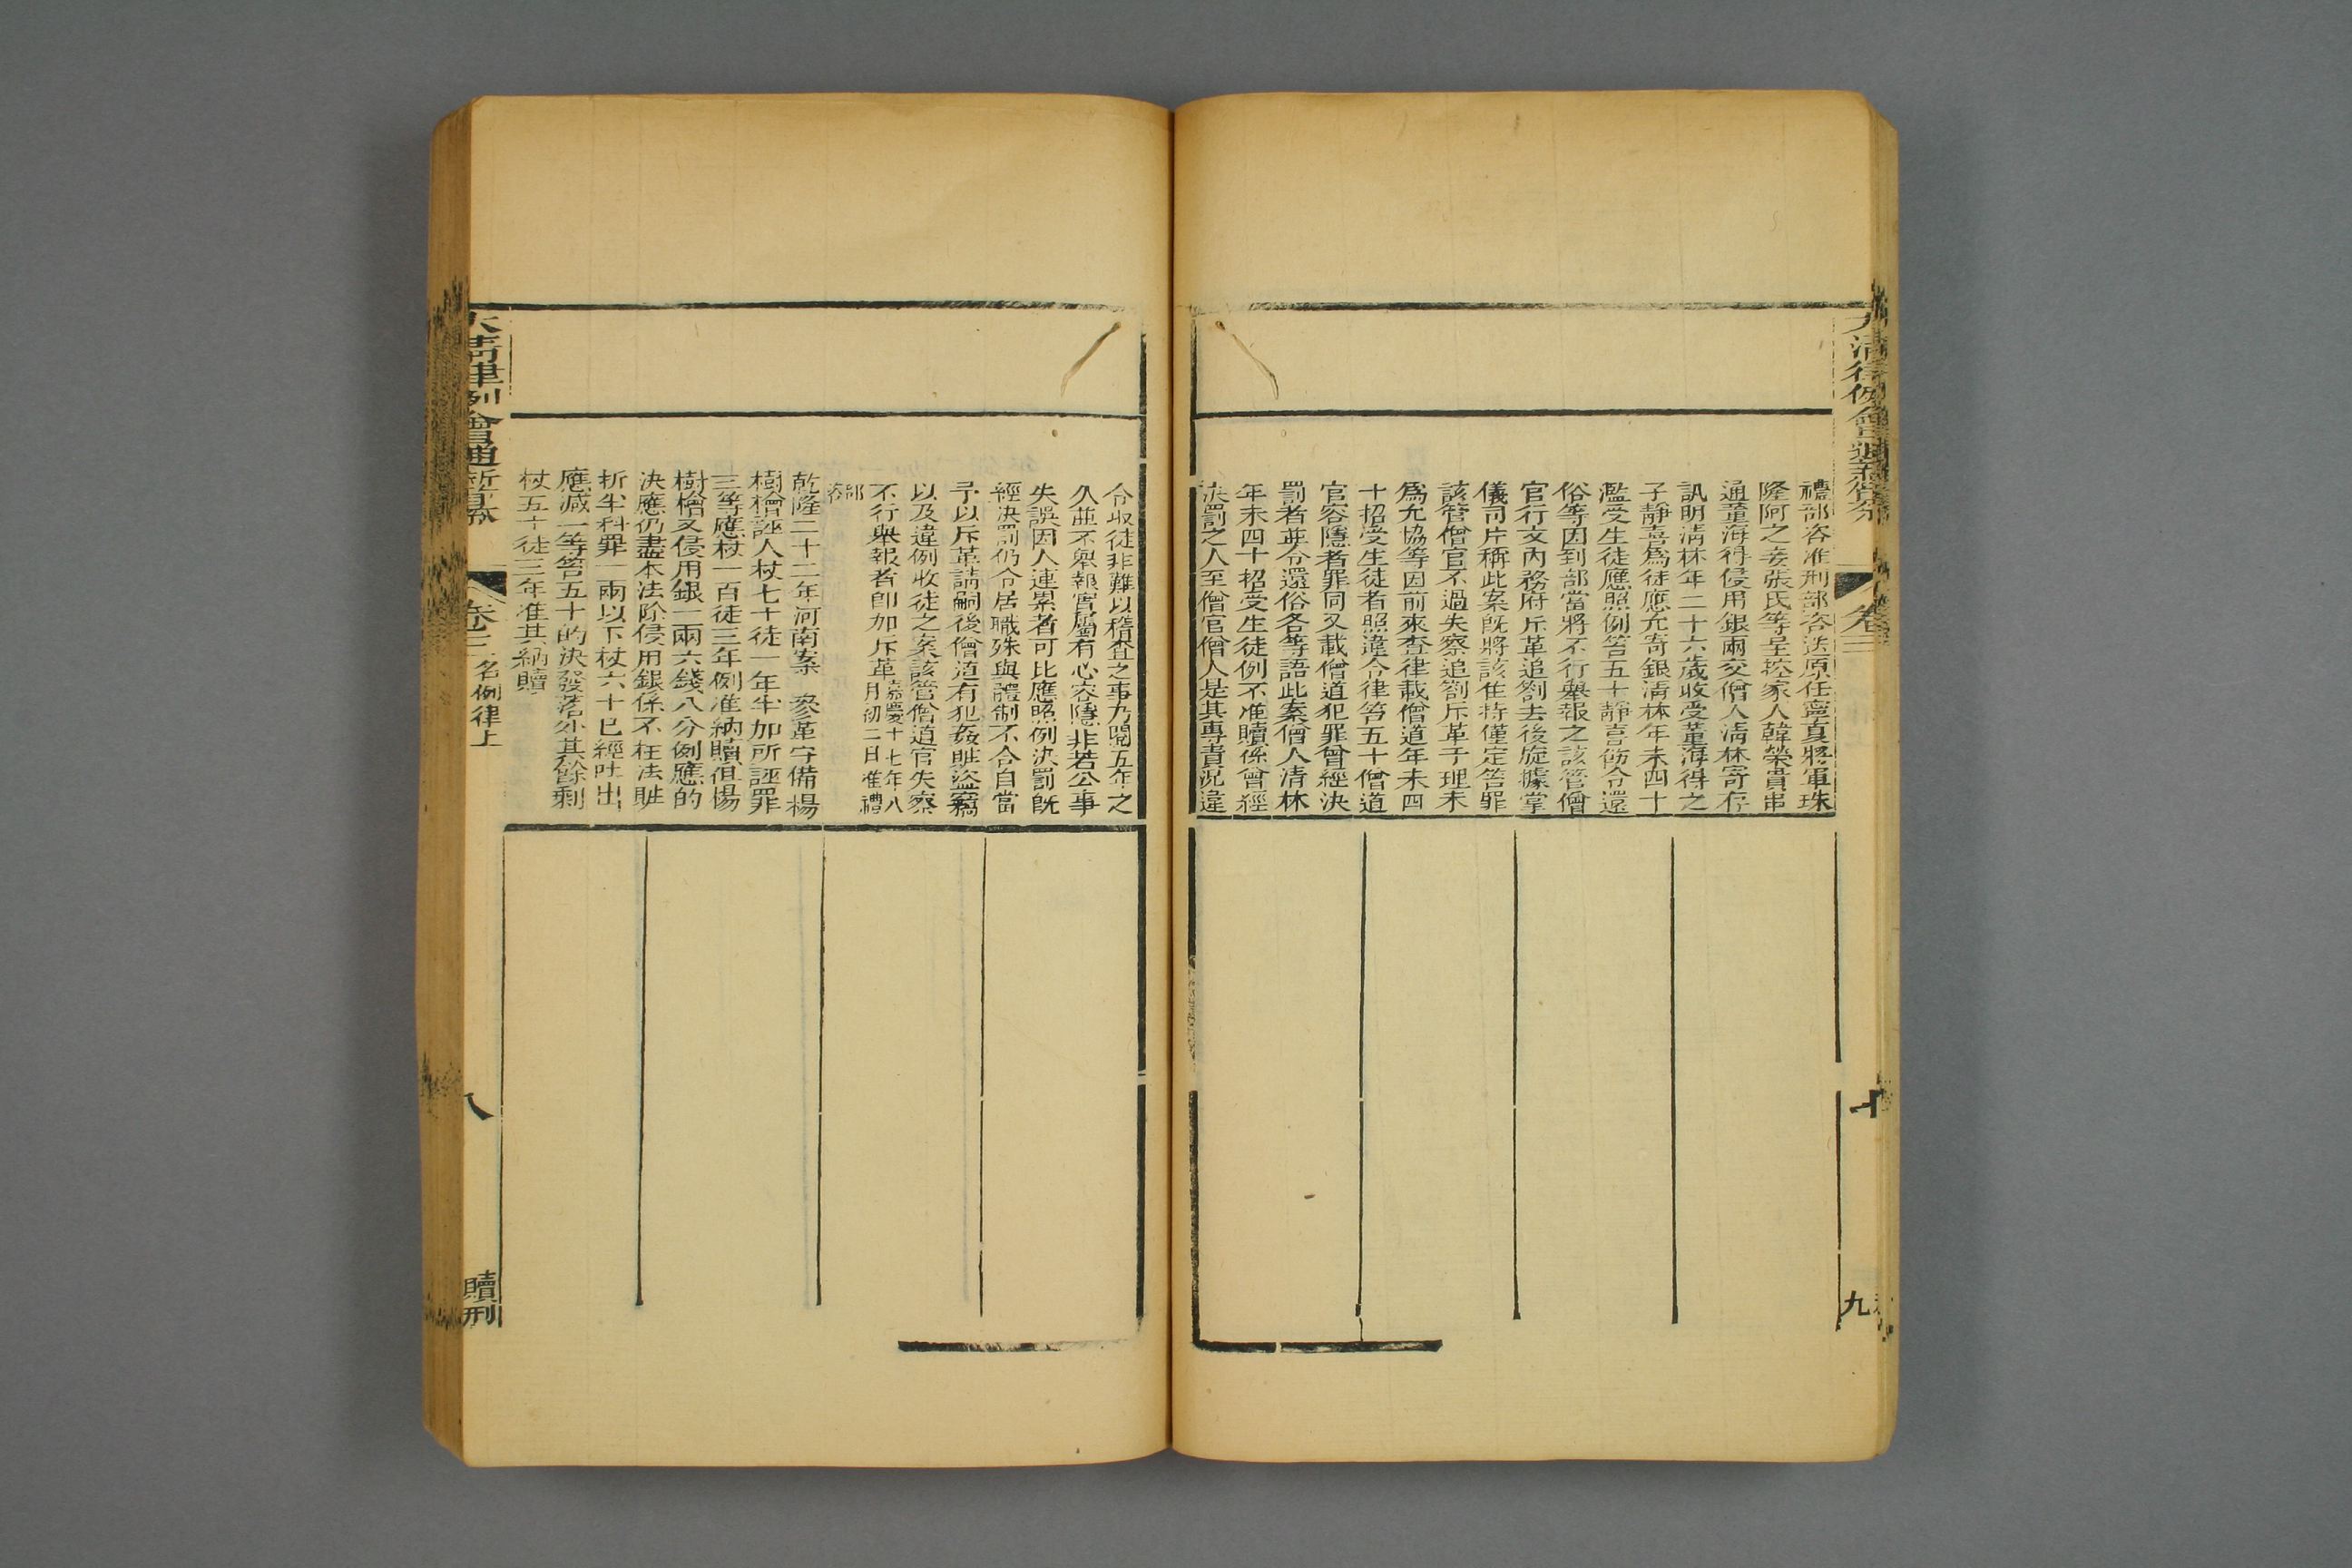 大清律例會通新纂
卷三
十
九
禮部咨准刑部咨送原任寧夏將軍珠
隆阿之妾張氏等呈控家人韓榮貴串
通董海得侵用銀兩交僧人清林寄存
訊明清林年二十六歲收受董海得之
子靜喜爲徒應允寄銀清林年未四十
濫受生徒應照例笞五十靜喜飭令還
俗等因到部當將不行舉報之該管僧
官行文內務府斥革追劄去後旋據掌
儀司片稱此案旣將該住持僅定笞罪
該管僧官不過失察追劄斥革于理未
爲允協等因前來查律載僧道年未四
十招受生徒者照違令律笞五十僧道
官容隱者罪同又載僧道犯罪曾經決
罰者並令還俗各等語此案僧人清林
年未四十招受生徒例不准贖係曾經
決罰之人至僧官僧人是其專責況違
令收徒非難以稽查之事乃閱五年之
久並不舉報實屬有心容隱非若公事
失誤因人連累者可比應照例決罰旣
經決罰仍令居職殊與體制不合自當
予以斥革請嗣後僧道有犯姦賍盜竊
以及違例收徒之案該管僧道官失察
不行舉報者卽加斥革嘉慶十七年八
月初二日准禮
部
咨
乾隆二十二年河南案 叅革守備楊
樹檜誣人杖七十徒一年半加所誣罪
三等應杖一百徒三年例准納贖但楊
樹檜又侵用銀一兩六錢八分例應的
決應仍盡本法除侵用銀係不枉法賍
折半科罪一兩以下杖六十已經吐出
應減一等笞五十的決發落外其餘剩
杖五十徒三年准其納贖
大清律例會通新纂
卷三 名例律上
八
贖刑